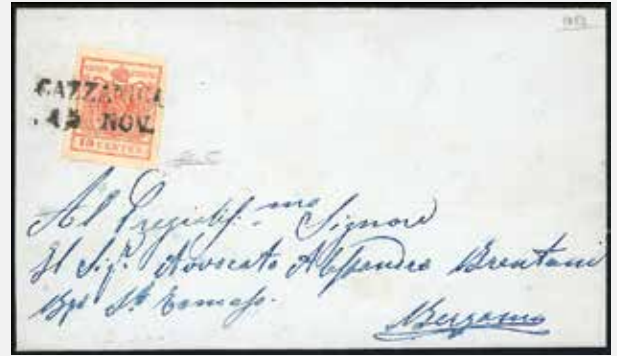 1853
GAZZANIGA
15 NOV.
15 CENTES.
Al Pregiatis.mo Signore
Il Sig.r Avvocato Alessandro Brentani
Bgo St. Tomaso.
Bergamo